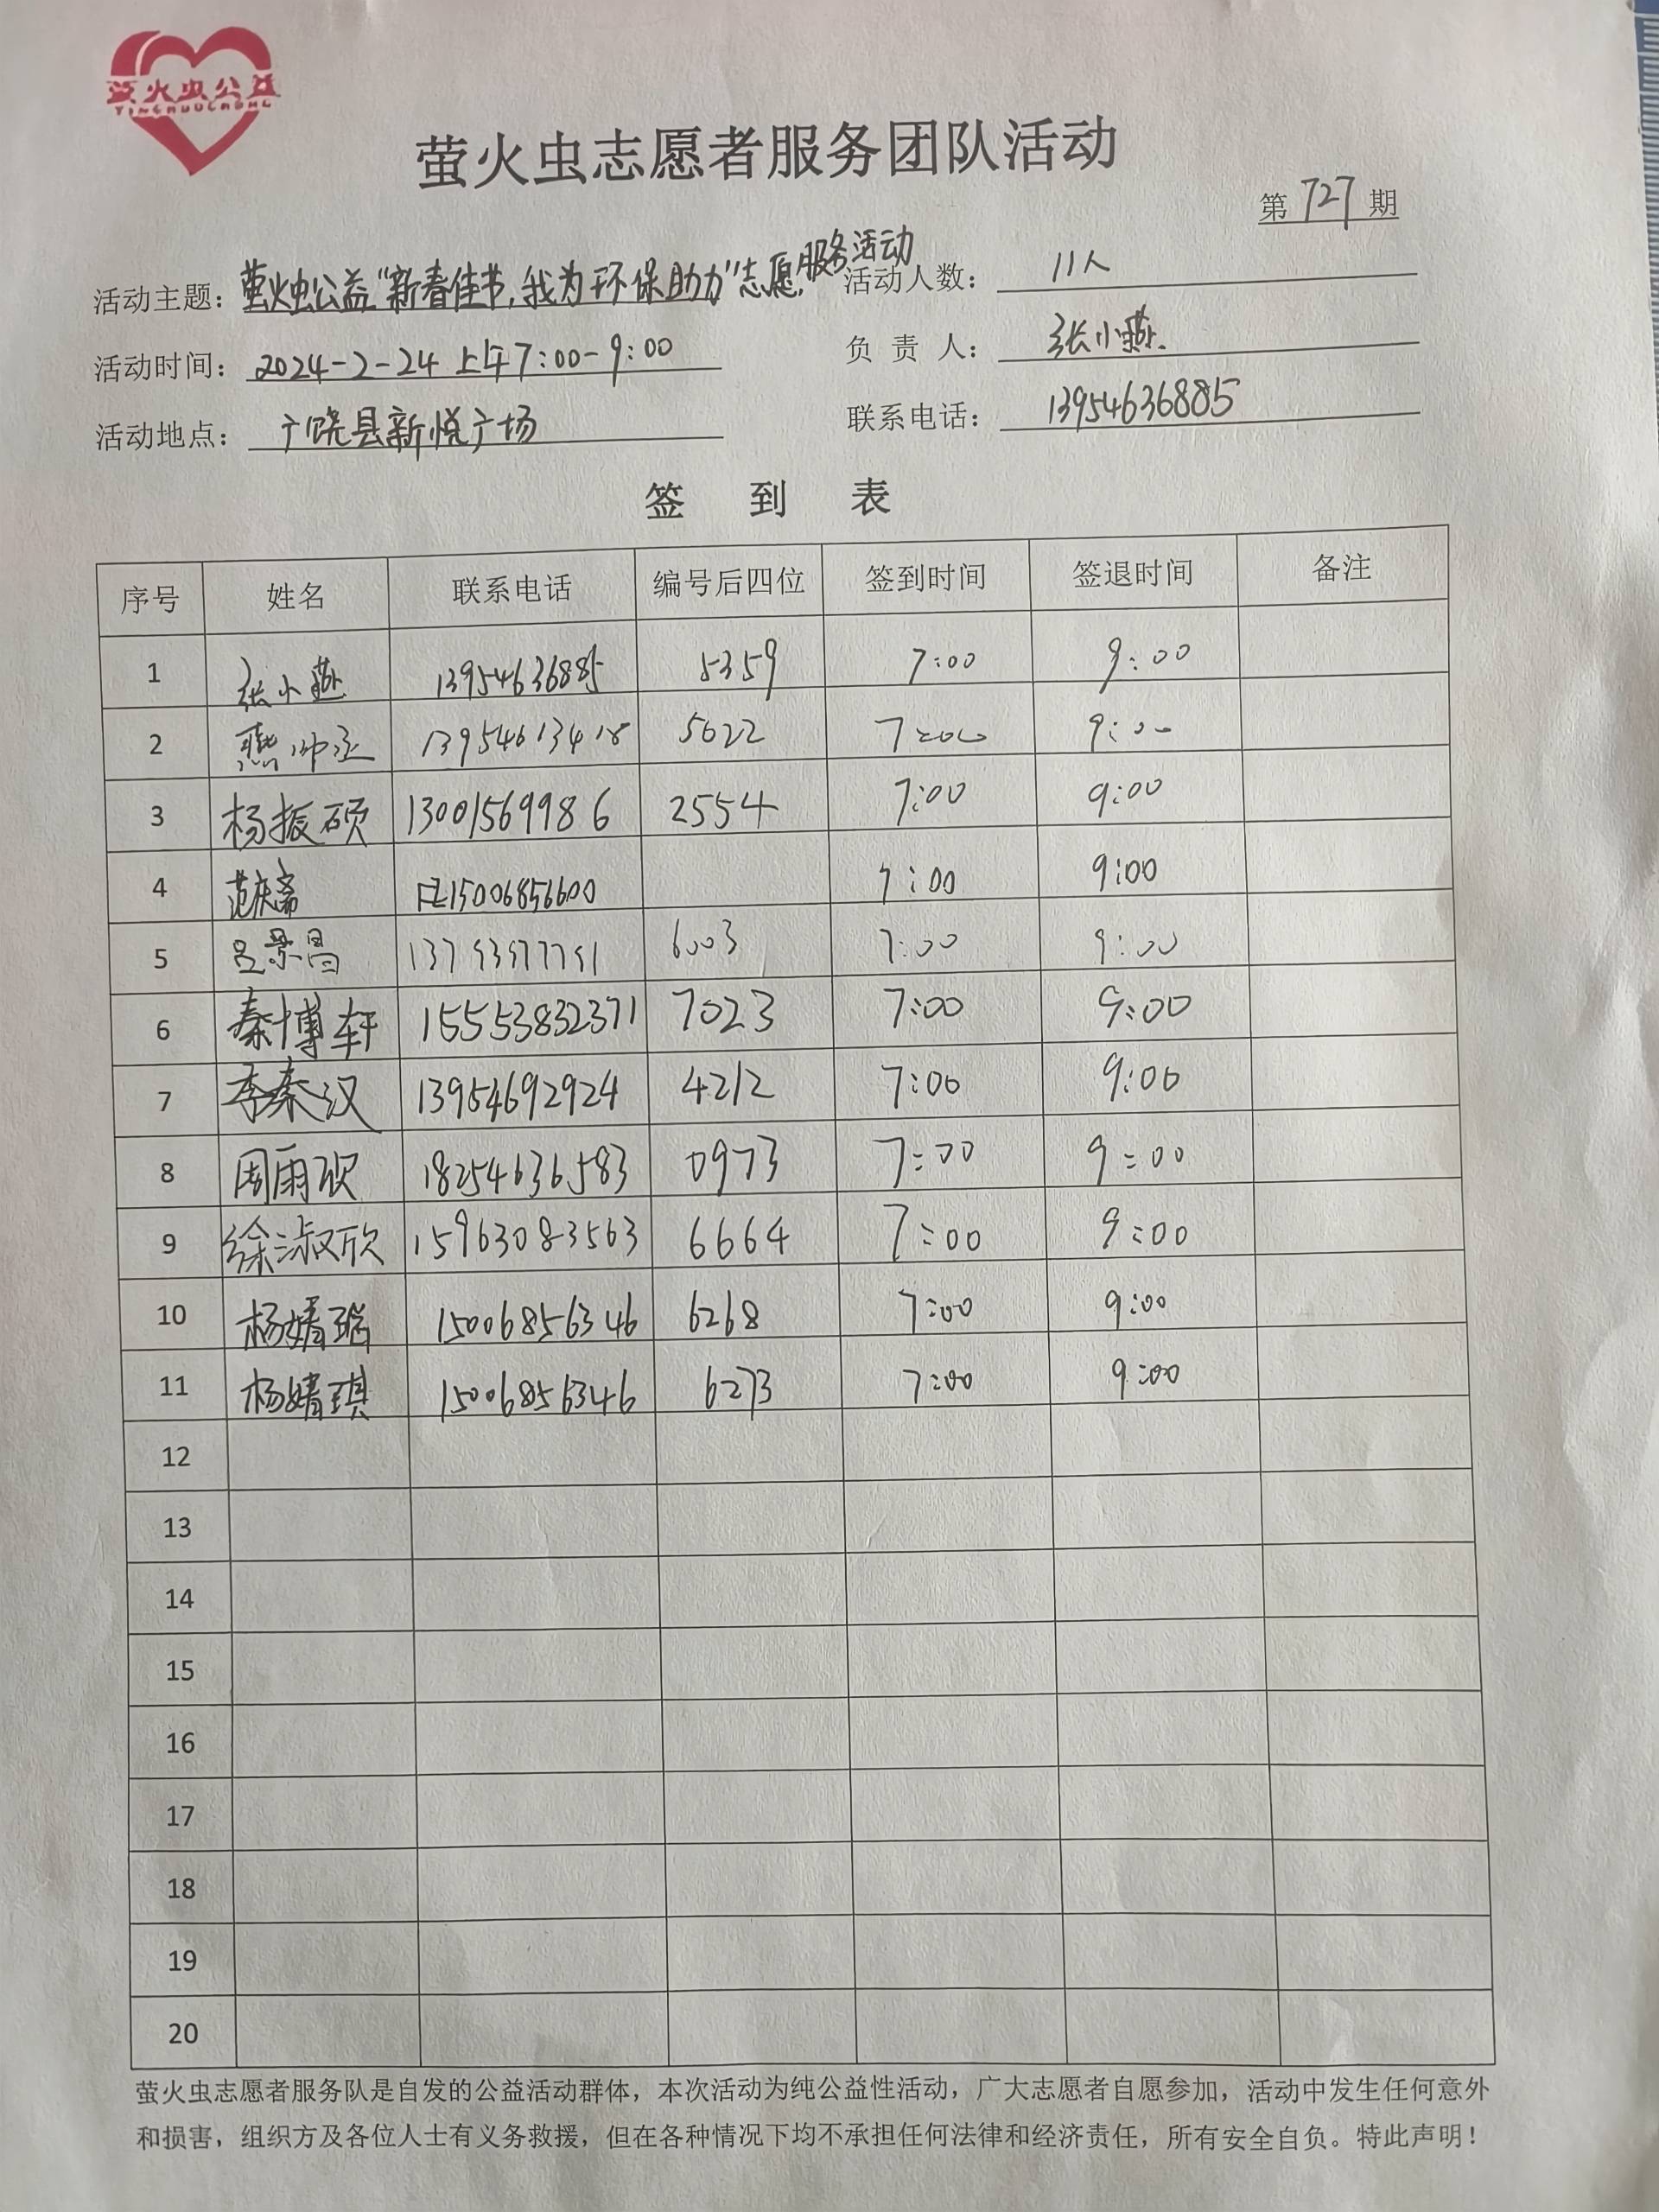 萤火虫公益
YINGHUOCHONG
萤火虫志愿者服务团队活动
第 727 期
活动主题：萤火虫公益“新春佳节,我为环保助力”志愿服务活动 活动人数： 11人
活动时间： 2024-2-24 上午7:00-9:00 负 责 人： 张小燕
活动地点： 广饶县新悦广场 联系电话： 13954636885
签 到 表
序号 姓名 联系电话 编号后四位 签到时间 签退时间 备注
1 张小燕 13954636885 5359 7:00 9:00
2 燕帅 13954613418 5622 7:00 9:00
3 杨振硕 13001569986 2554 7:00 9:00
4 15006856600 7:00 9:00
5 吕景昌 6003 7:00 9:00
6 秦博轩 15553832371 7023 7:00 9:00
7 李秦汉 13954692924 4212 7:00 9:00
8 周雨欣 18254636583 0973 7:00 9:00
9 徐淑欣 15963083563 6664 7:00 9:00
10 杨婧瑶 15006856346 6268 7:00 9:00
11 杨婧琪 15006856346 6273 7:00 9:00
12
13
14
15
16
17
18
19
20
萤火虫志愿者服务队是自发的公益活动群体，本次活动为纯公益性活动，广大志愿者自愿参加，活动中发生任何意外
和损害，组织方及各位人士有义务救援，但在各种情况下均不承担任何法律和经济责任，所有安全自负。特此声明！